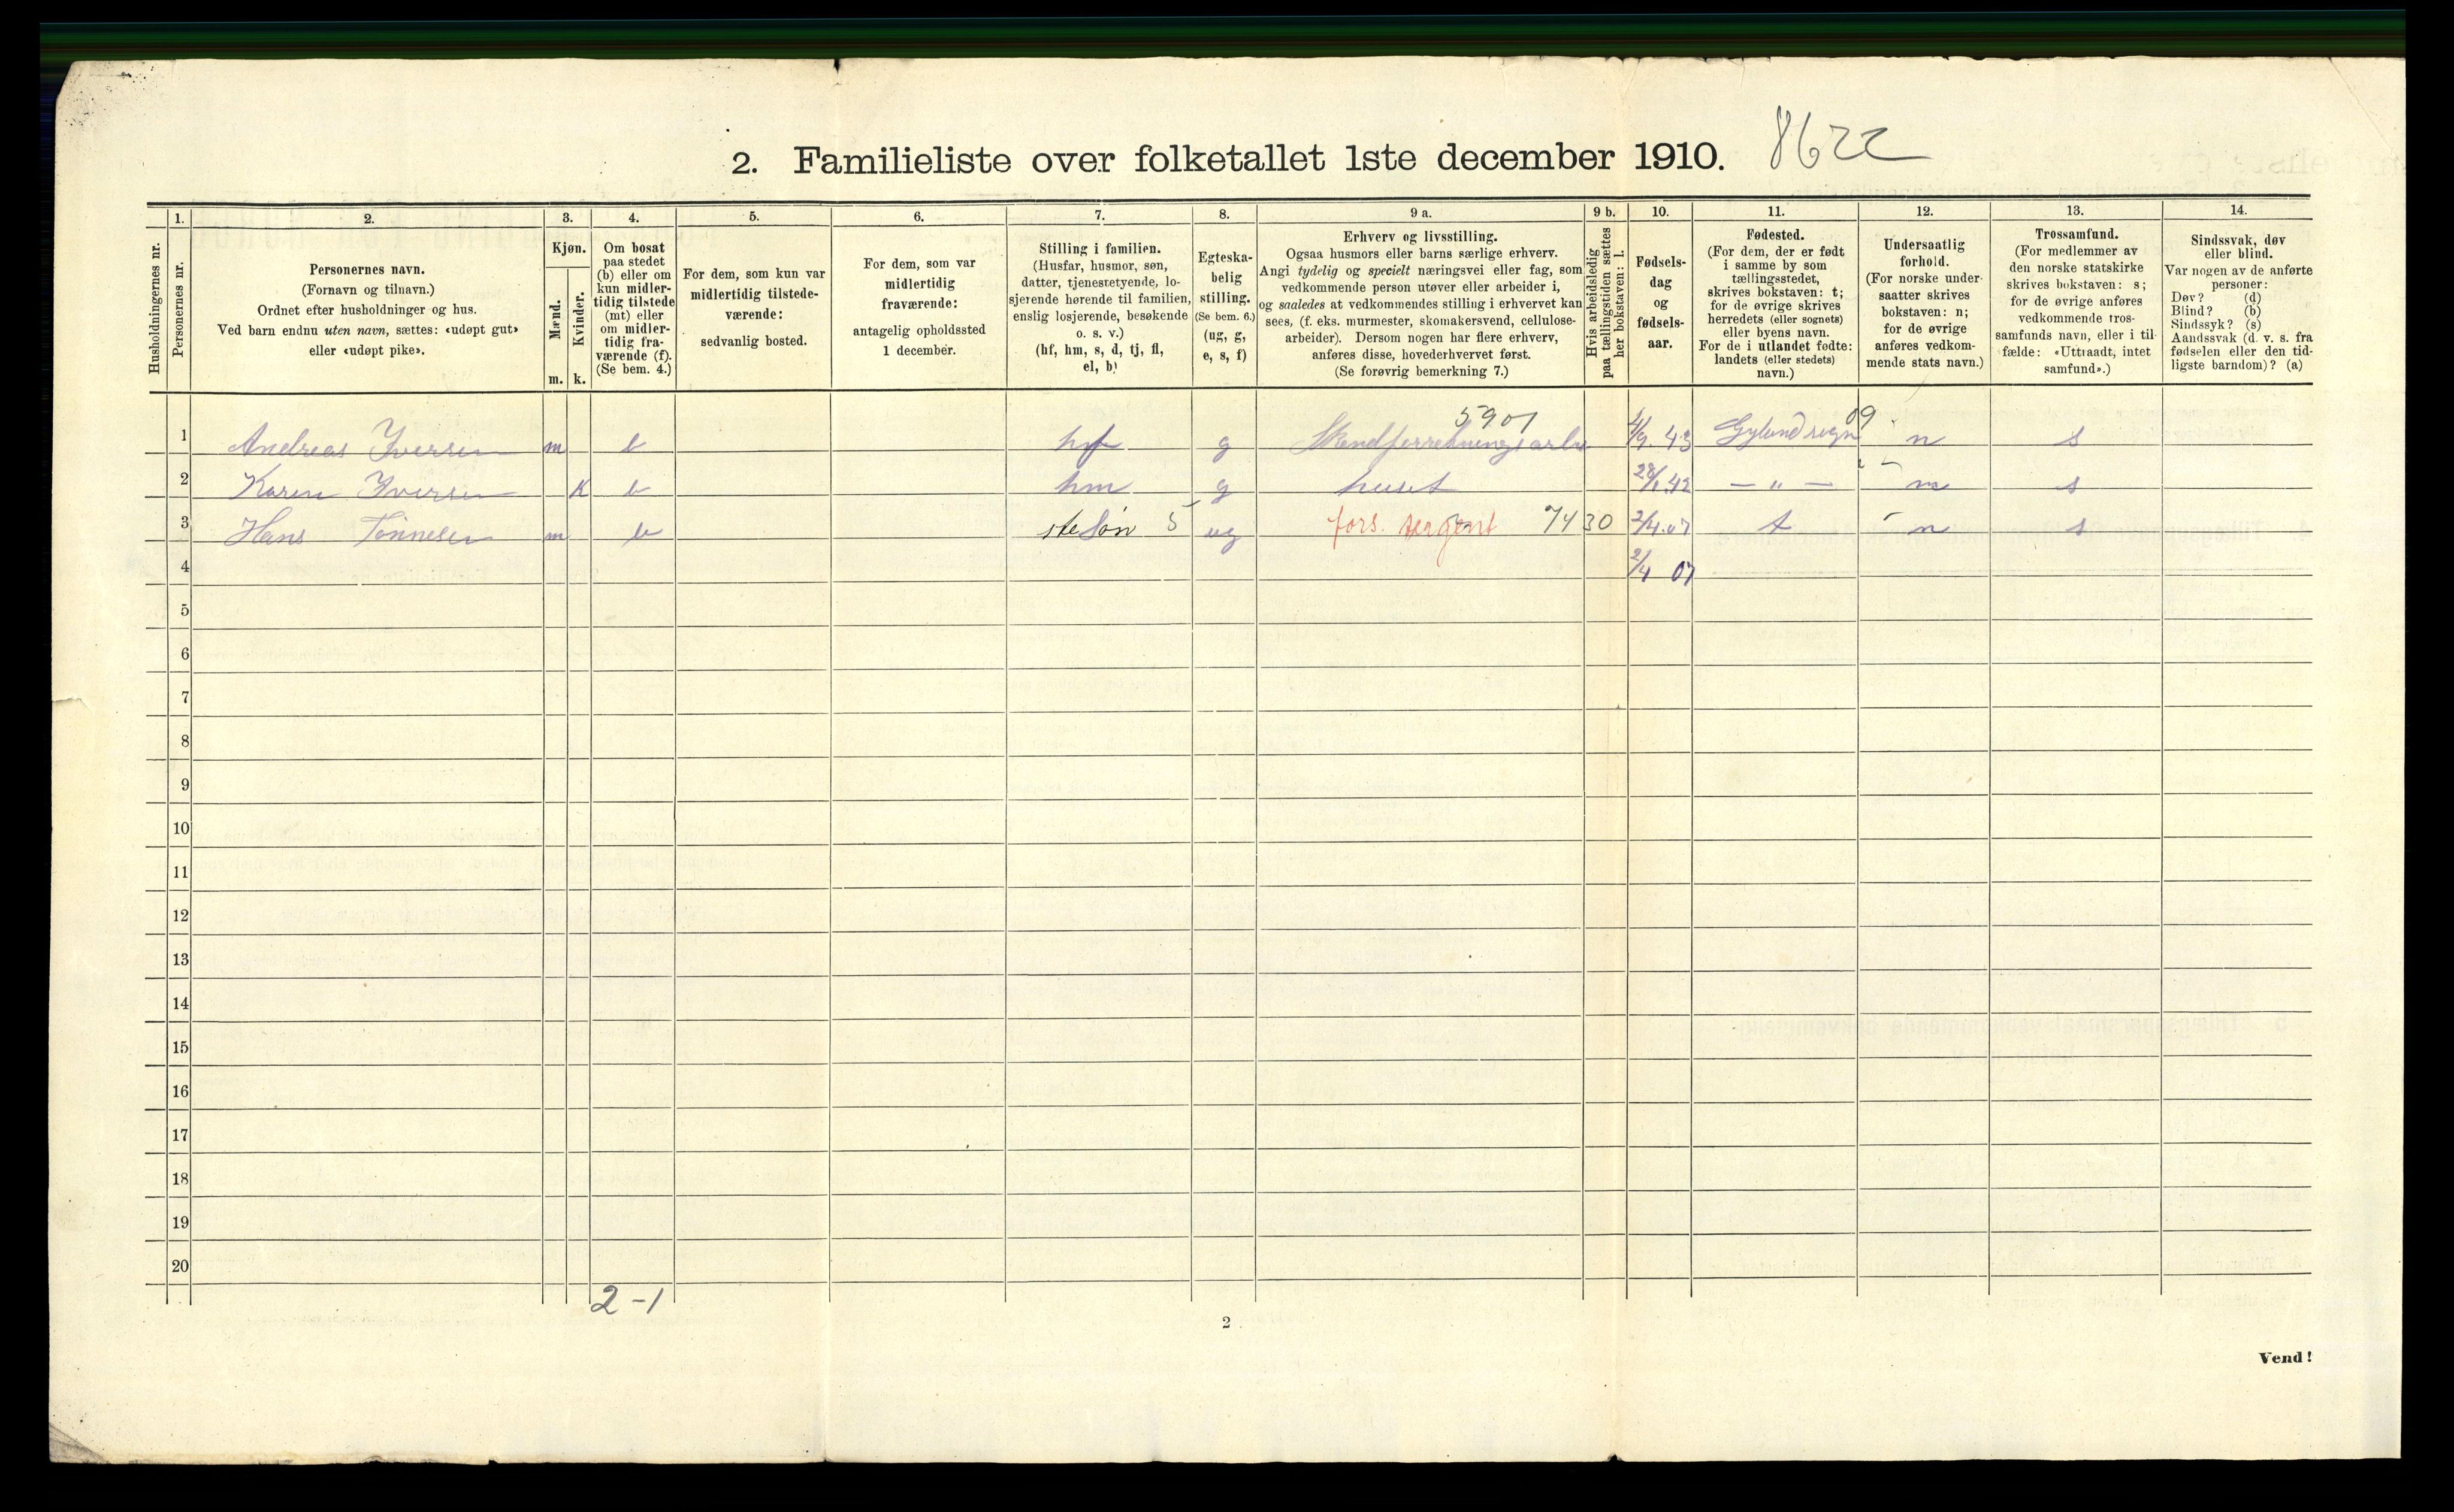 2. Familieliste over folketallet 1ste december 1910. 8622
1. 2. 3. 4. 5. 6. 7. 8. 9 a. 9 b. 10. 11. 12. 13. 14.
Husholdningernes nr.
Personernes nr.
Personernes navn.
(Fornavn og tilnavn.)
Ordnet efter husholdninger og hus.
Ved barn endnu uten navn, sættes: «udøpt gut»
eller «udøpt pike».
Kjøn.
Mænd.
Kvinder.
m. k.
Om bosat
paa stedet
(b) eller om
kun midler-
tidig tilstede
(mt) eller
om midler-
tidig fra-
værende (f).
(Se bem. 4.)
For dem, som kun var
midlertidig tilstede-
værende:
sedvanlig bosted.
For dem, som var
midlertidig
fraværende:
antagelig opholdssted
1 december.
Stilling i familien.
(Husfar, husmor, søn,
datter, tjenestetyende, lo-
sjerende hørende til familien,
enslig losjerende, besøkende
o. s. v.)
(hf, hm, s, d, tj, fl,
el, b)
Egteska-
belig
stilling.
(Se bem. 6.)
(ug, g,
e, s, f)
Erhverv og livsstilling.
Ogsaa husmors eller barns særlige erhverv.
Angi tydelig og specielt næringsvei eller fag, som
vedkommende person utøver eller arbeider i,
og saaledes at vedkommendes stilling i erhvervet kan
sees, (f. eks. murmester, skomakersvend, cellulose-
arbeider). Dersom nogen har flere erhverv,
anføres disse, hovederhvervet først.
(Se forøvrig bemerkning 7.)
Hvis arbeidsledig
paa tællingstiden sættes
her bokstaven: l.
Fødsels-
dag
og
fødsels-
aar.
Fødested.
(For dem, der er født
i samme by som
tællingsstedet,
skrives bokstaven: t;
for de øvrige skrives
herredets (eller sognets)
eller byens navn.
For de i utlandet fødte:
landets (eller stedets)
navn.)
Undersaatlig
forhold.
(For norske under-
saatter skrives
bokstaven: n;
for de øvrige
anføres vedkom-
mende stats navn.)
Trossamfund.
(For medlemmer av
den norske statskirke
skrives bokstaven: s;
for de øvrige anføres
vedkommende tros-
samfunds navn, eller i til-
fælde: «Uttraadt, intet
samfund».)
Sindssvak, døv
eller blind.
Var nogen av de anførte
personer:
Døv? (d)
Blind? (b)
Sindssyk? (s)
Aandssvak (d. v. s. fra
fødselen eller den tid-
ligste barndom)? (a)
5901 09
1 Andreas Iversen m b hf g 4/9 43 Gyland sogn n s
2 Karen Iversen K b hm g huset 28/1 42 — " — n s
3 Hans Tønnesen m b steSøn 5 ug fors. 7430 2/4.07 t n s
4 2/4 07
5
6
7
8
9
10
11
12
13
14
15
16
17
18
19
20
2-1
2
Vend!